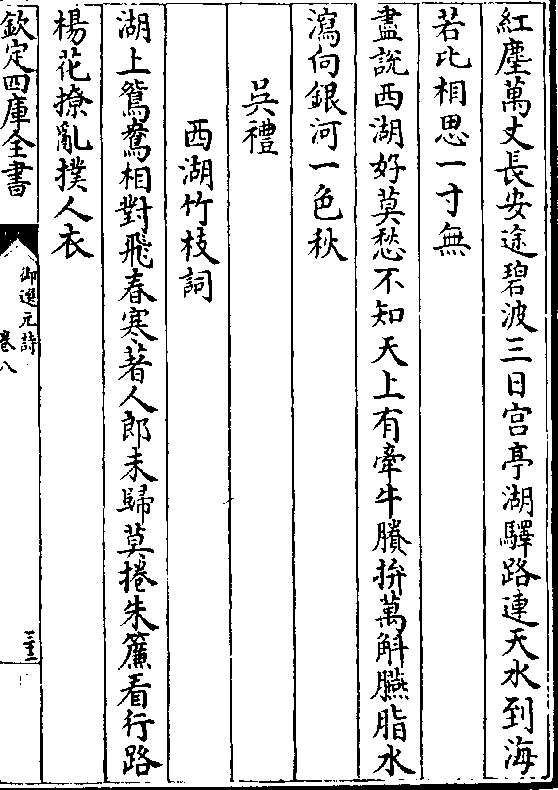 紅塵萬丈長安途碧波三日宫亭湖驛路連天水到海
若比相思一寸無
盡說西湖好莫愁不知天上有牽牛賸拚萬斛臙脂水
瀉向銀河一色秋
吳禮
西湖竹枝詞
湖上鴛鴦相對飛春寒著人郎未歸莫捲朱簾看行路
楊花撩亂撲人衣
欽定四庫全書
御選元詩
卷八
三十二